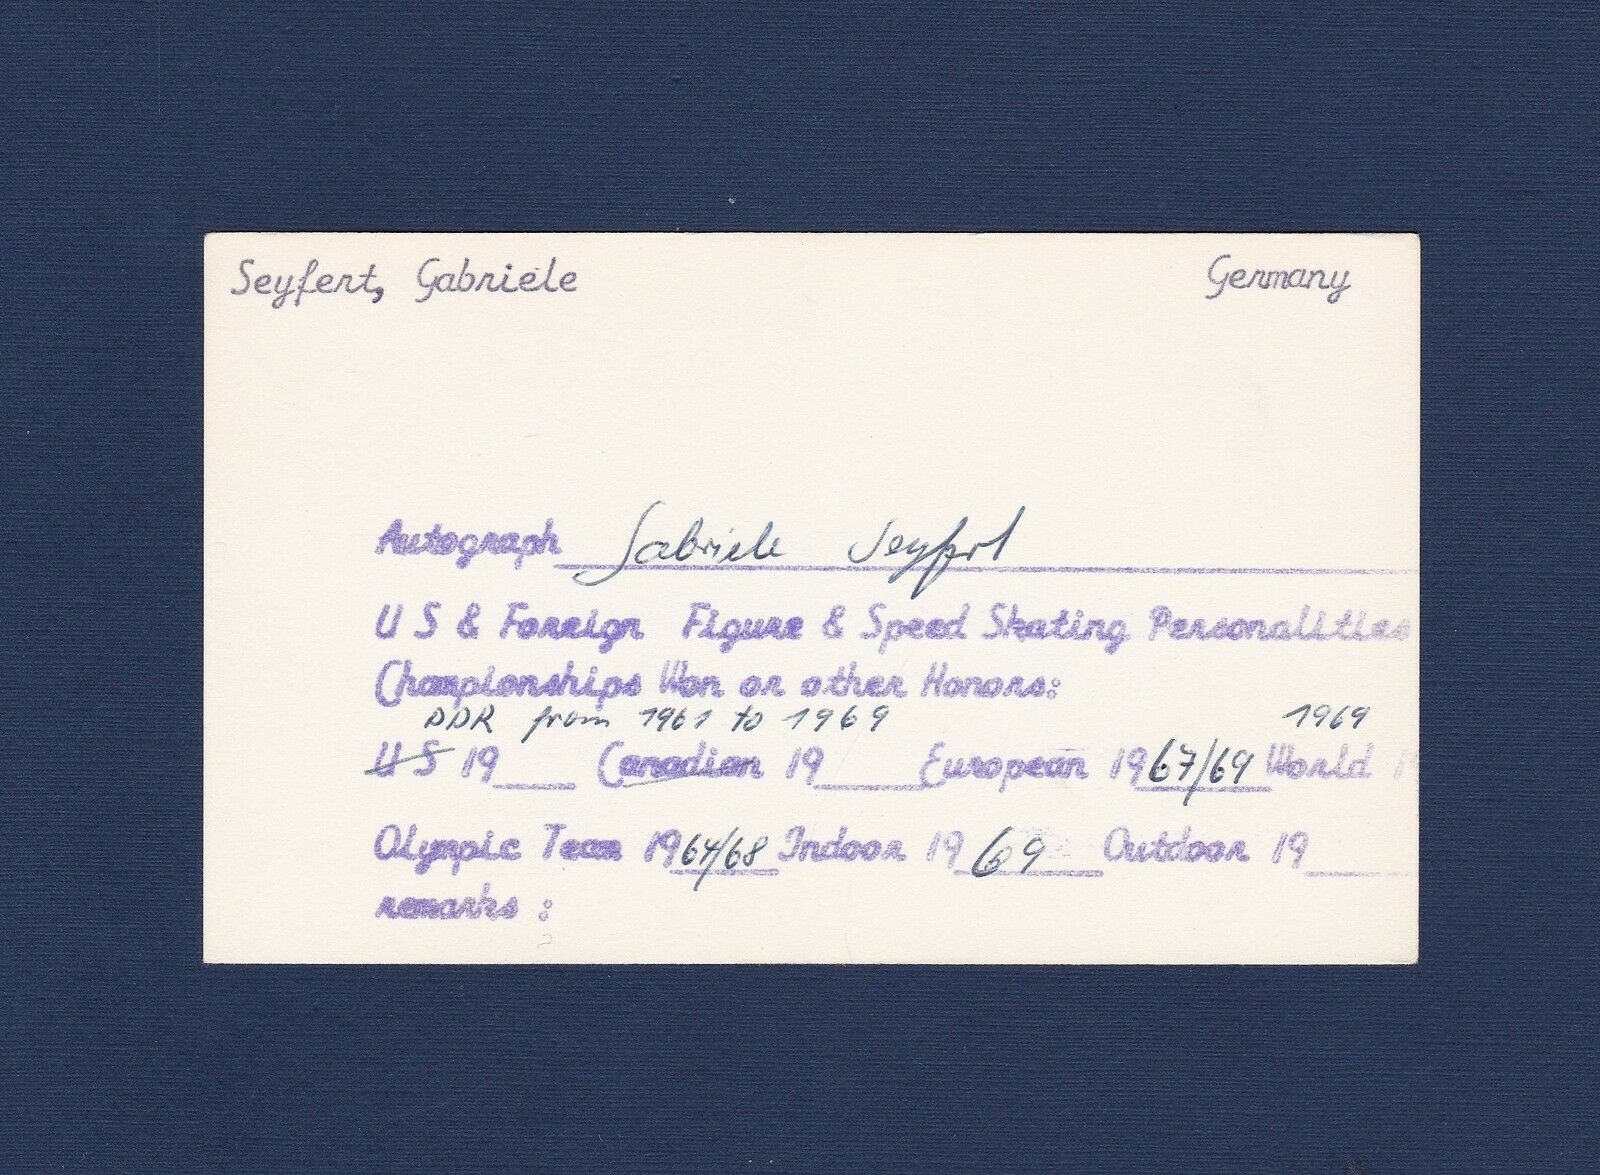 Seyfert, Gabriele Germany
Autograph Gabriele Seyfert
U S & Foreign Figure & Speed Skating Personalities
Championships Won or other Honors:
DDR from 1961 to 1969 1969
U S 19___ Canadian 19___ European 1967/69 World 19
Olympic Team 1964/68 Indoor 1969 Outdoor 19___
remarks :